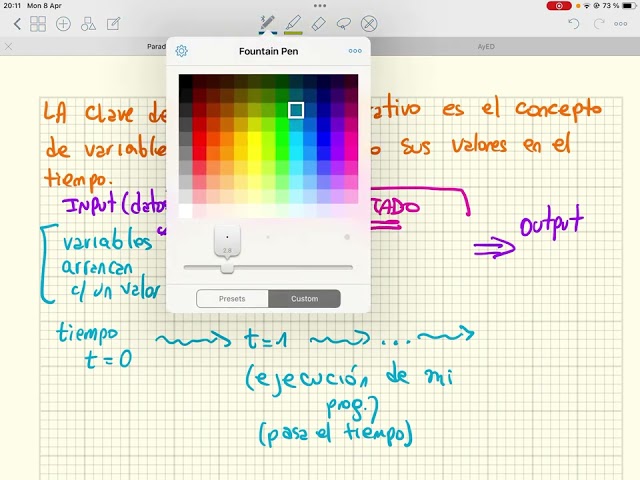 20:11 Mon 8 Apr 73 %
Parad AyED
Fountain Pen
LA clave de ativo es el concepto
de variable o sus valores en el
tiempo.
INPUT (dato TADO OUTPUT
variables
arrancan
c/ un valor
2.8
Presets Custom
tiempo t=1 ...
t=0
(ejecución de mi
prog.)
(pasa el tiempo)